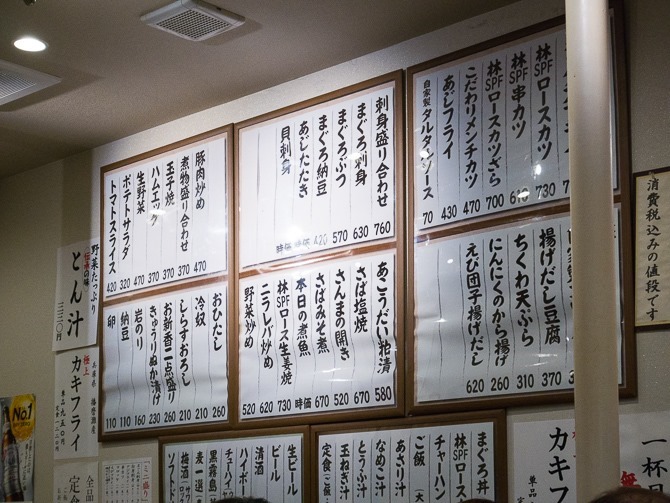 刺身盛り合わせ 760
まぐろ刺身 630
まぐろぶつ 570
まぐろ納豆 420
あじたたき 時価
貝刺身 時価
林SPFロースカツ 730
林SPF串カツ 610
林SPFロースカツざら 700
こだわりメンチカツ 470
あじフライ 430
自家製タルタルソース 70
豚肉炒め 470
煮物盛り合わせ 370
玉子焼 370
ハムエッグ 370
生野菜 470
ポテトサラダ 320
トマトスライス 420
揚げだし豆腐 370
ちくわ天ぷら 310
にんにくのから揚げ 260
えび団子揚げだし 620
あこうだい粕漬 580
さば塩焼 670
さんまの開き 520
さばみそ煮 670
本日の煮魚 時価
林SPFロース生姜焼 730
ニラレバ炒め 620
野菜炒め 520
おひたし 260
冷奴 210
しらすおろし 210
お新香二点盛り 260
きゅうりぬか漬け 230
岩のり 160
納豆 110
卵 110
消費税込みの値段です
野菜たっぷり
伝承の味
とん汁
三三〇円
兵庫県 播磨灘産
極上
カキフライ
単品九五〇円
定食
全品
まぐろ丼
林SPFロース
チャーハン
ご飯
あさり汁
なめこ汁
とうふ汁
玉ねぎ汁
定食(ご飯
生ビール
ビール
清酒
ハイボ
チューハイ
黒霧島
麦一選
梅酒
ソフトド
カキフ
一杯
No.1